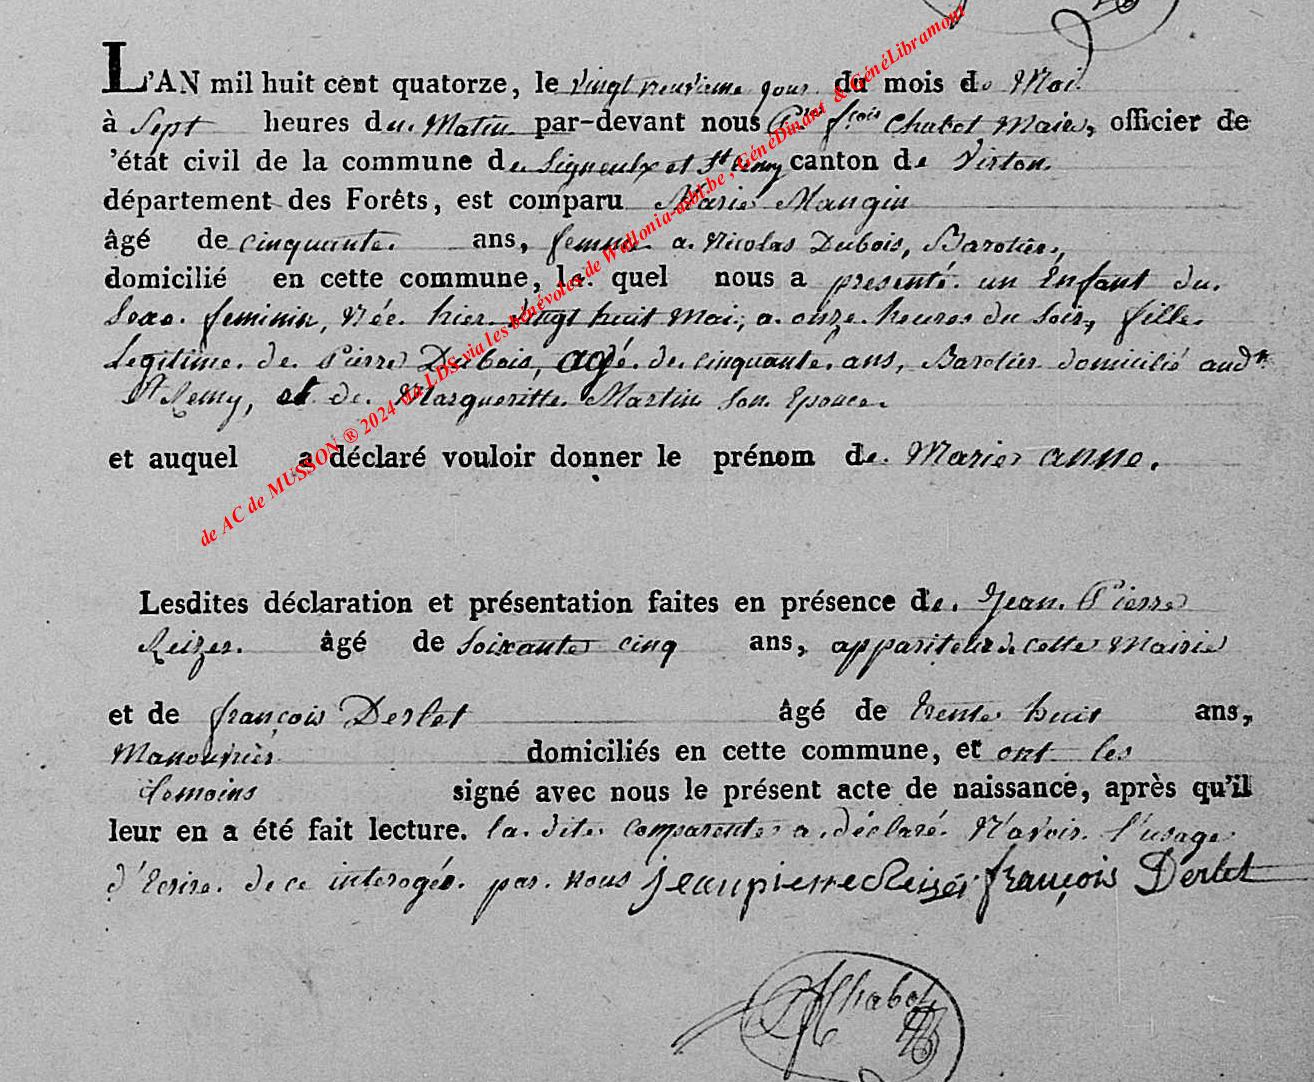 L'AN mil huit cent quatorze, le vingt neuvieme jour du mois de Mai
à Sept heures du Matin par-devant nous Pre fçois Chabot Maire, officier de
'état civil de la commune de Signeulx et St Remy canton de Virton
département des Forêts, est comparu Marie Mangin
âgé de cinquante ans, femme a Nicolas Dubois, Barotier,
domicilié en cette commune, la quel nous a presenté un Enfant du
Sexe feminin, Née hier vingt huit Mai, a onze heures du Soir, fille
Legitime de Pierre Dubois, agé de cinquante ans, Barotier domicilié audt
St Remy, et de Margueritte Martin Son Epouce
et auquel a déclaré vouloir donner le prénom de Marie anne.
Lesdites déclaration et présentation faites en présence de Jean Pierre
Reizer âgé de Soixante cinq ans, appariteur de cette Mairie
et de françois Derlet âgé de trente huit ans,
Manouvrier domiciliés en cette commune, et ont les
temoins signé avec nous le présent acte de naissance, après qu'il
leur en a été fait lecture. la dite comparente a déclaré N'avoir l'usage
d'Ecrire de ce interogée par nous jeanpierre Reizer françois Derlet
Chabot
de AC de MUSSON ® 2024 via LDS via les bénévoles de Wallonia-asbl.be, GénéDinant & GénéLibramont